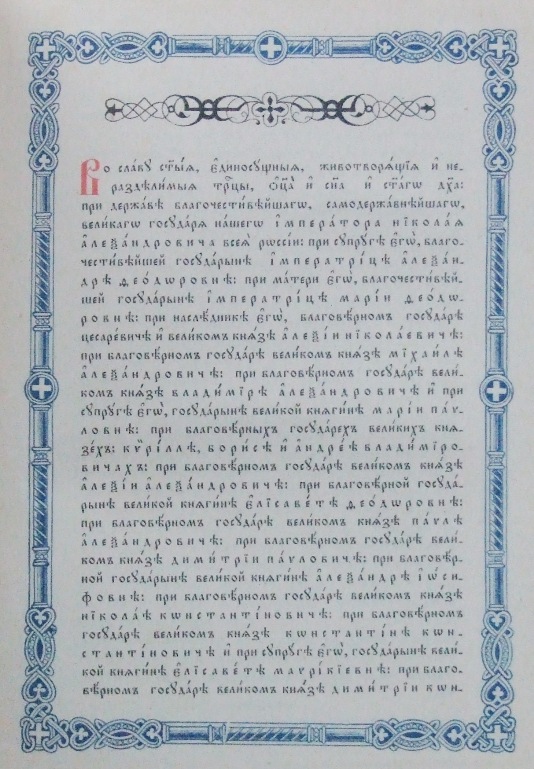 Во сла́вꙋ ст҃ы́ѧ, є҆диносꙋ́щныѧ, животворѧ́щїѧ и҆ не-
раздѣ́лимыѧ трⷪ҇цы, ѻ҆ц҃а̀ и҆ сн҃а и҆ ст҃а́гѡ дх҃а:
при держа́вѣ благочести́вѣйшагѡ, самодержа́внѣйшагѡ,
вели́кагѡ госꙋда́рѧ на́шегѡ і҆мпера́тора нїкола́ѧ
а҆леѯа́ндровича всеѧ̀ рѡссі́и: при сꙋпрꙋ́гѣ є҆гѡ̀, благо-
чести́вѣйшей госꙋда́рынѣ і҆мператрі́цѣ а҆леѯа́н-
дрѣ ѳео́дѡровнѣ: при ма́тери є҆гѡ̀, благочести́вѣй-
шей госꙋда́рынѣ і҆мператрі́цѣ марі́и ѳео́дѡ-
ровнѣ: при наслѣ́дникѣ є҆гѡ̀, благовѣ́рномъ госꙋда́рѣ
цесаре́вичѣ и҆ вели́комъ кнѧ́зѣ а҆леѯі́и нїкола́евичѣ:
при благовѣ́рномъ госꙋда́рѣ вели́комъ кнѧ́зѣ мїхаи́лѣ
а҆леѯа́ндровичѣ: при благовѣ́рномъ госꙋда́рѣ вели́-
комъ кнѧ́зѣ влади́мїрѣ а҆леѯа́ндровичѣ и҆ при
сꙋпрꙋ́гѣ є҆гѡ̀, госꙋда́рынѣ вели́кой кнѧги́нѣ марі́и па́ѵ-
ловнѣ: при благовѣ́рныхъ госꙋда́рехъ вели́кихъ кнѧ-
зе́хъ: кѷрі́ллѣ, бори́сѣ и҆ а҆ндре́ѣ влади́мїро-
вичахъ: при благовѣ́рномъ госꙋда́рѣ вели́комъ кнѧ́зѣ
а҆леѯі́и а҆леѯа́ндровичѣ: при благовѣ́рной госꙋда́-
рынѣ вели́кой кнѧги́нѣ є҆лїсаве́тѣ ѳео́дѡровнѣ:
при благовѣ́рномъ госꙋда́рѣ вели́комъ кнѧ́зѣ па́ѵлѣ
а҆леѯа́ндровичѣ: при благовѣ́рномъ госꙋда́рѣ вели́-
комъ кнѧ́зѣ дими́трїи па́ѵловичѣ: при благовѣ́р-
ной госꙋда́рынѣ вели́кой кнѧги́нѣ а҆леѯа́ндрѣ і҆ѡ́си-
фовнѣ: при благовѣ́рномъ госꙋда́рѣ вели́комъ кнѧ́зѣ
нїкола́ѣ кѡнстанті́новичѣ: при благовѣ́рномъ
госꙋда́рѣ вели́комъ кнѧ́зѣ кѡнстанті́нѣ кѡн-
станті́новичѣ и҆ при сꙋпрꙋ́гѣ є҆гѡ̀, госꙋда́рынѣ вели́-
кой кнѧги́нѣ є҆лїсаве́тѣ маѵрі́кїевнѣ: при благо-
вѣ́рномъ госꙋда́рѣ вели́комъ кнѧ́зѣ дими́трїи кѡн-